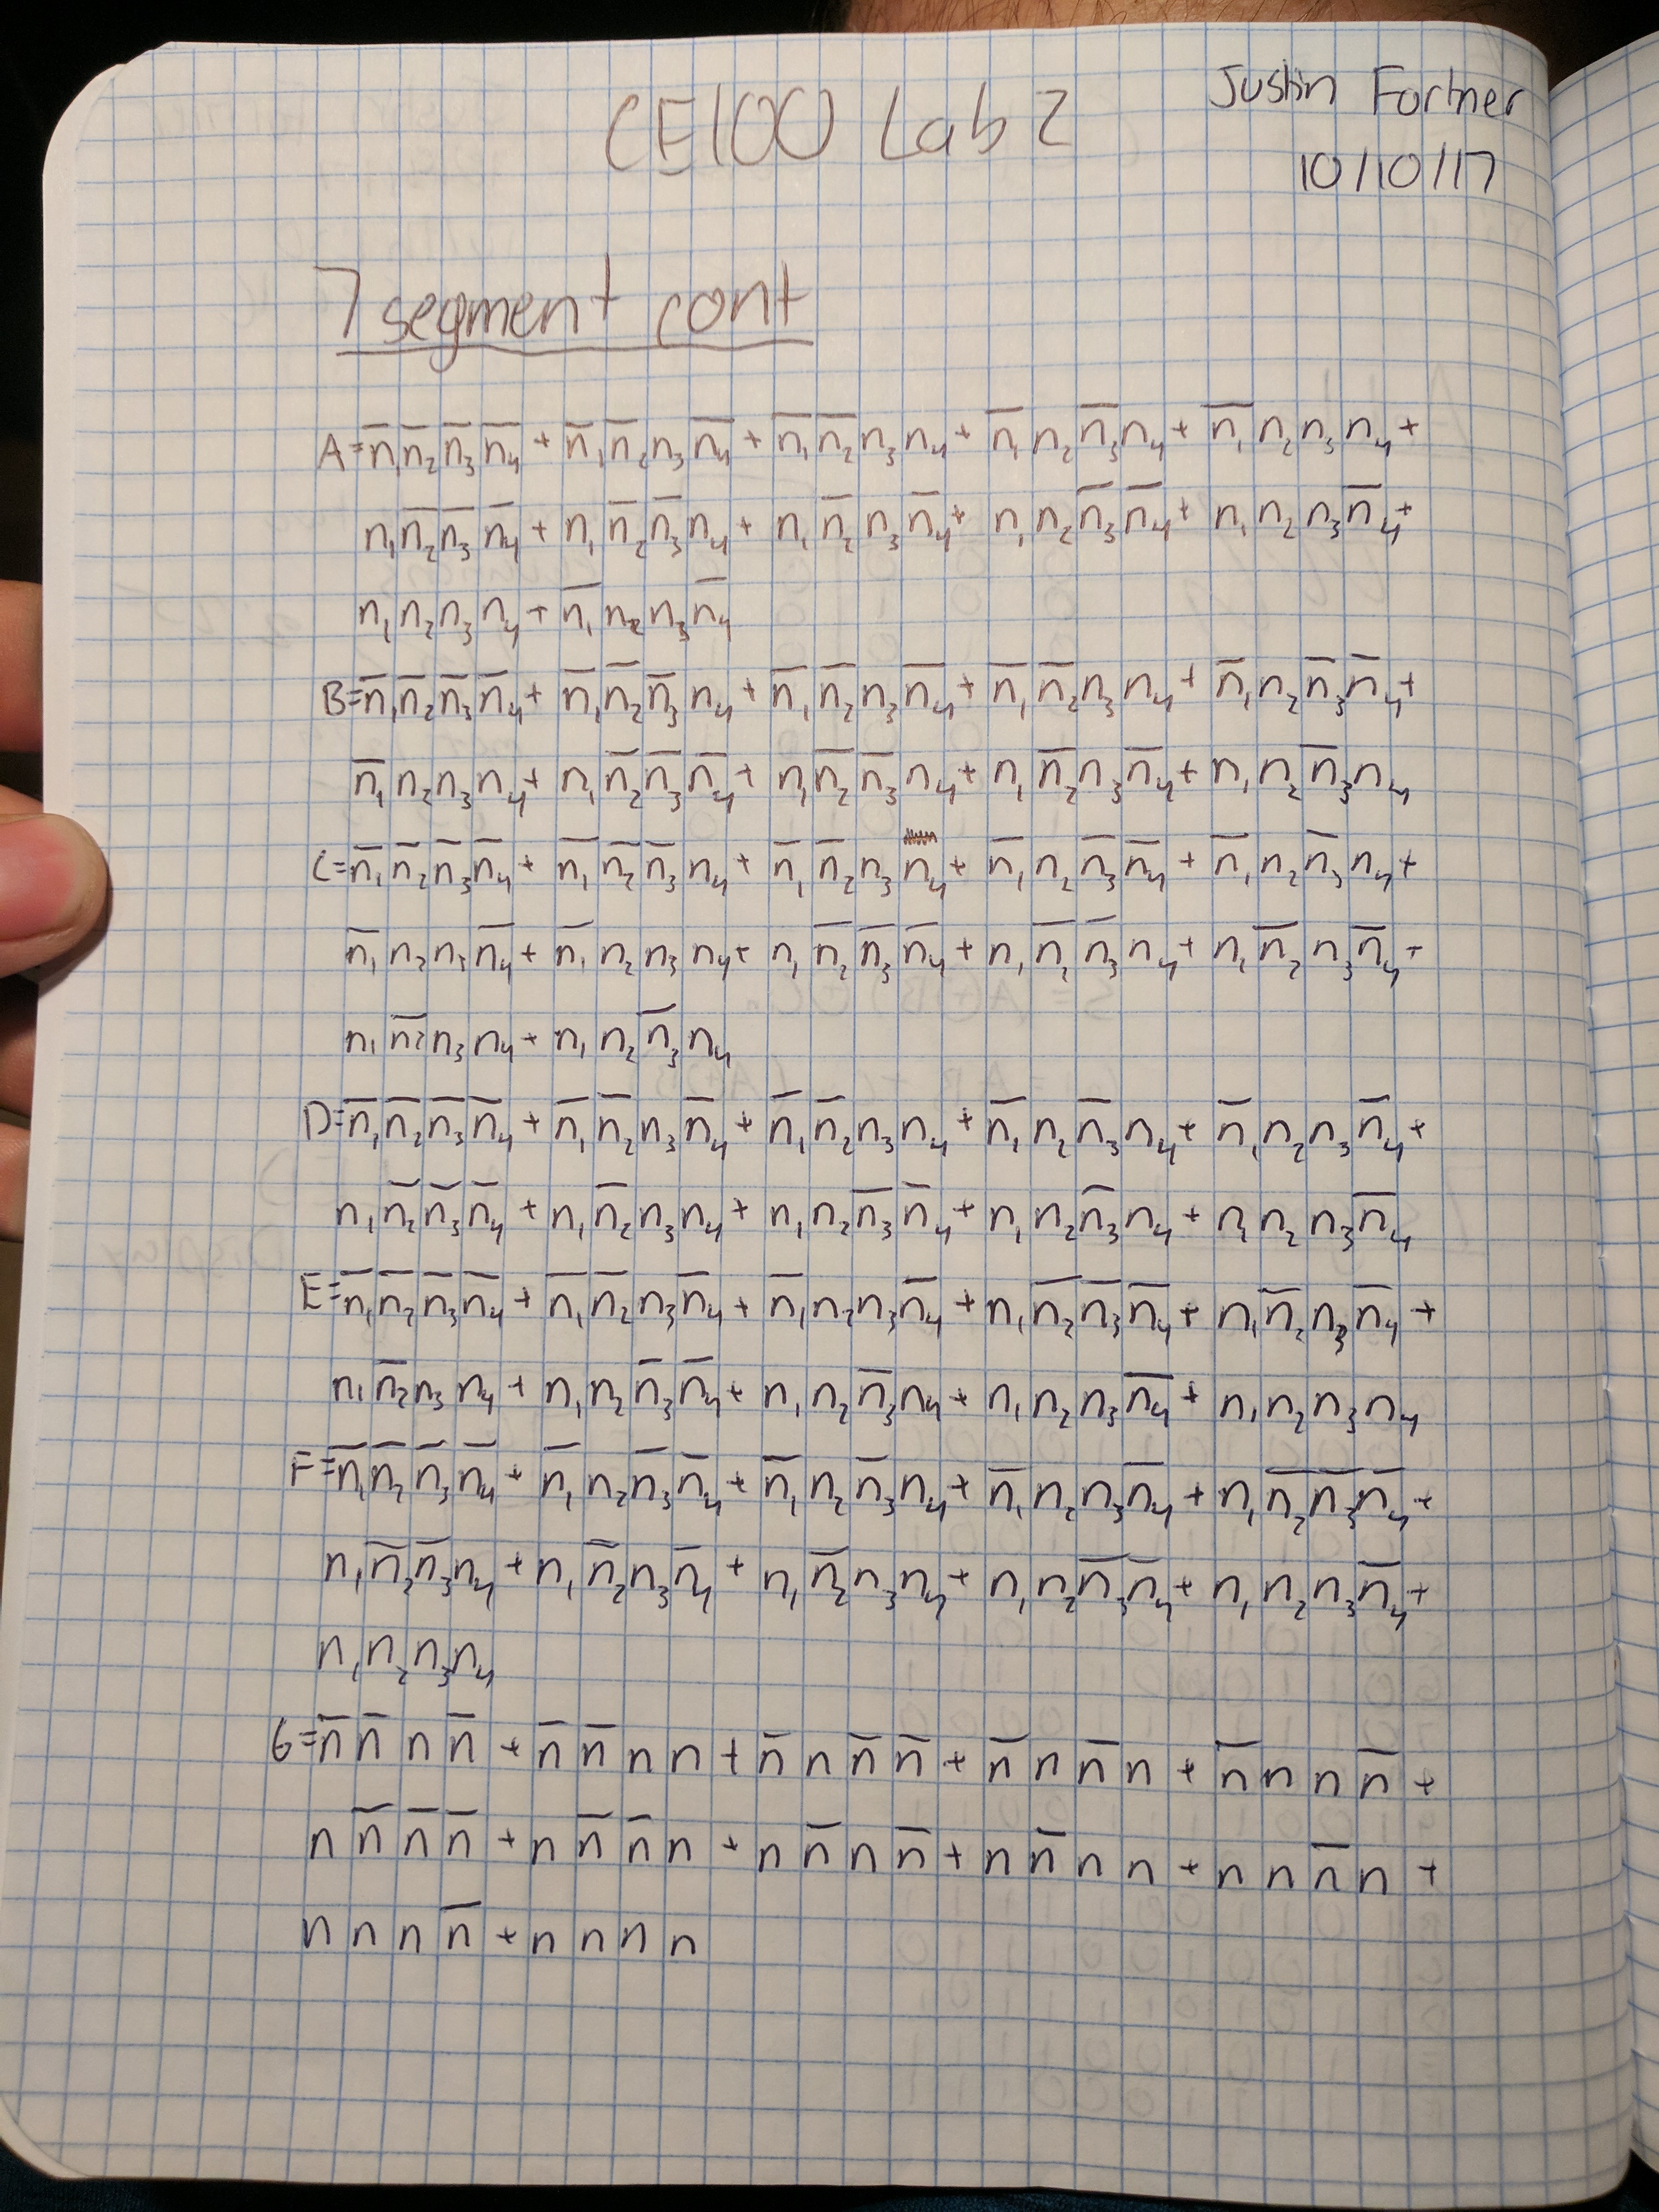 CE100 Lab 2
Justin Fortner
10/10/17
7 segment cont
A=n̅₁n̅₂n̅₃n̅₄ + n̅₁n̅₂n₃n̅₄ + n̅₁n̅₂n₃n₄ + n̅₁n₂n̅₃n₄ + n̅₁n₂n₃n₄ +
n₁n̅₂n̅₃n̅₄ + n₁n̅₂n̅₃n₄ + n₁n̅₂n₃n̅₄ + n₁n₂n̅₃n̅₄ + n₁n₂n₃n̅₄ +
n₁n₂n₃n₄ + n̅₁n₂n₃n̅₄
B=n̅₁n̅₂n̅₃n̅₄ + n̅₁n̅₂n̅₃n₄ + n̅₁n̅₂n₃n̅₄ + n̅₁n̅₂n₃n₄ + n̅₁n₂n̅₃n̅₄ +
n̅₁n₂n₃n₄ + n₁n̅₂n̅₃n̅₄ + n₁n̅₂n̅₃n₄ + n₁n̅₂n₃n̅₄ + n₁n₂n̅₃n₄
C=n̅₁n̅₂n̅₃n̅₄ + n̅₁n̅₂n̅₃n₄ + n̅₁n̅₂n₃n₄ + n̅₁n₂n̅₃n̅₄ + n̅₁n₂n̅₃n₄ +
n̅₁n₂n₃n̅₄ + n̅₁n₂n₃n₄ + n₁n̅₂n̅₃n̅₄ + n₁n̅₂n̅₃n₄ + n₁n̅₂n₃n̅₄ +
n₁n̅₂n₃n₄ + n₁n₂n̅₃n₄
D=n̅₁n̅₂n̅₃n̅₄ + n̅₁n̅₂n₃n̅₄ + n̅₁n̅₂n₃n₄ + n̅₁n₂n̅₃n₄ + n̅₁n₂n₃n̅₄ +
n₁n̅₂n̅₃n̅₄ + n₁n̅₂n₃n₄ + n₁n₂n̅₃n̅₄ + n₁n₂n̅₃n₄ + n₁n₂n₃n̅₄
E=n̅₁n̅₂n̅₃n̅₄ + n̅₁n̅₂n₃n̅₄ + n̅₁n₂n₃n̅₄ + n₁n̅₂n̅₃n̅₄ + n₁n̅₂n₃n̅₄ +
n₁n̅₂n₃n₄ + n₁n₂n̅₃n̅₄ + n₁n₂n̅₃n₄ + n₁n₂n₃n̅₄ + n₁n₂n₃n₄
F=n̅₁n̅₂n̅₃n̅₄ + n̅₁n₂n̅₃n̅₄ + n̅₁n₂n̅₃n₄ + n̅₁n₂n₃n̅₄ + n₁n̅₂n̅₃n̅₄ +
n₁n̅₂n̅₃n₄ + n₁n̅₂n₃n̅₄ + n₁n̅₂n₃n₄ + n₁n₂n̅₃n̅₄ + n₁n₂n₃n̅₄ +
n₁n₂n₃n₄
G=n̅ n̅ n n̅ + n̅ n̅ n n + n̅ n n̅ n̅ + n̅ n n̅ n + n̅ n n n̅ +
n n̅ n̅ n̅ + n n̅ n̅ n + n n̅ n n̅ + n n̅ n n + n n n̅ n +
n n n n̅ + n n n n